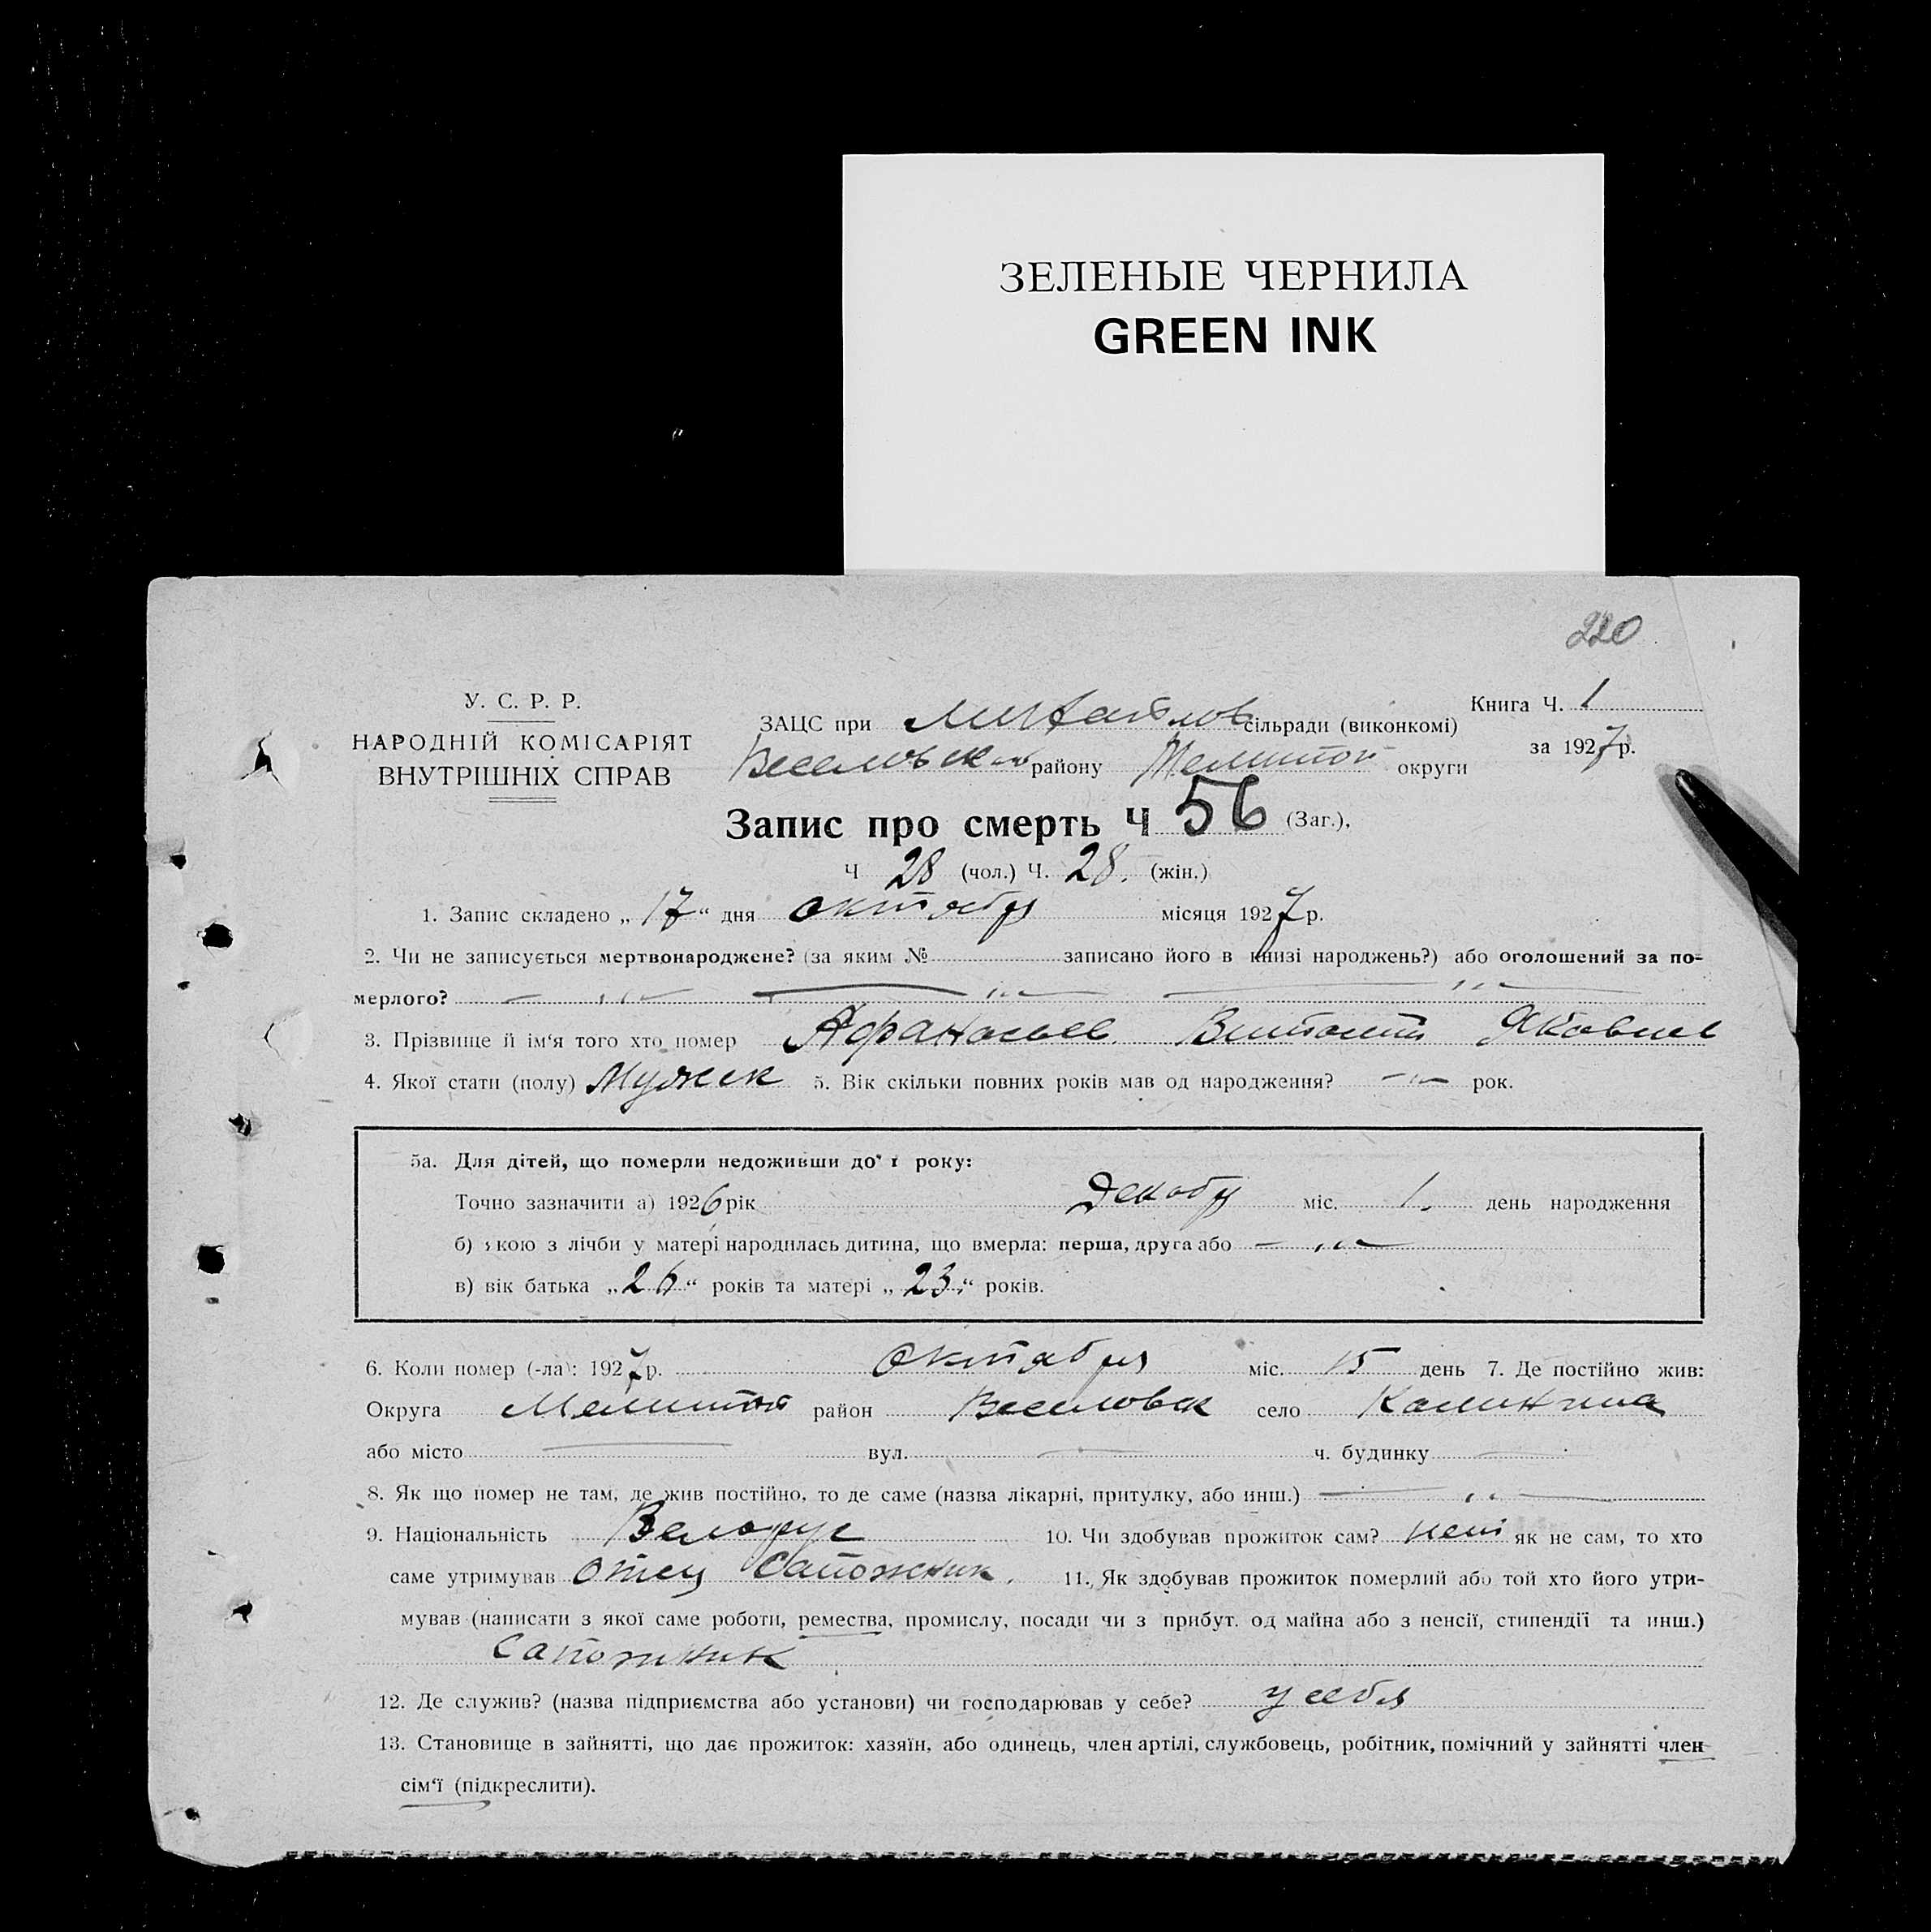 ЗЕЛЕНЫЕ ЧЕРНИЛА
GREEN INK
220
У. С. Р. Р.
НАРОДНІЙ КОМІСАРІЯТ
ВНУТРІШНІХ СПРАВ
Книга Ч. 1
за 1927 р.
ЗАЦС при Михайлов сільради (виконкомі)
Веселовск району Мелитоп округи
Запис про смерть Ч 56 (Заг.),
Ч 28 (чол.) Ч. 28. (жін.)
1. Запис складено „ 17 “ дня октября місяця 1927 р.
2. Чи не записується мертвонароджене? (за яким № записано його в книзі народжень?) або оголошений за по-
мерлого?
3. Прізвище й ім‘я того хто помер Афанасьев Яковлев
4. Якої стати (полу) Мужск 5. Вік скільки повних років мав од народження? рок.
5а. Для дітей, що померли недоживши до 1 року:
Точно зазначити а) 1926 рік Декабр міс. 1. день народження
б) якою з лічби у матері народилась дитина, що вмерла: перша, друга або
в) вік батька „26“ років та матері „23“ років.
6. Коли помер (-ла): 1927 р. октября міс. 15 день 7. Де постійно жив:
Округа Мелитоп район Веселовск село Калинина
або місто вул. ч. будинку
8. Як що помер не там, де жив постійно, то де саме (назва лікарні, притулку, або инш.)
9. Національність Белорус 10. Чи здобував прожиток сам? нет як не сам, то хто
саме утримував отец Сапожник. 11. Як здобував прожиток померлий або той хто його утри-
мував (написати з якої саме роботи, ремества, промислу, посади чи з прибут. од майна або з пенсії, стипендії та инш.)
Сапожник
12. Де служив? (назва підприємства або установи) чи господарював у себе? у себя
13. Становище в зайнятті, що дає прожиток: хазяїн, або одинець, член артілі, службовець, робітник, помічний у зайнятті член
сім‘ї (підкреслити).